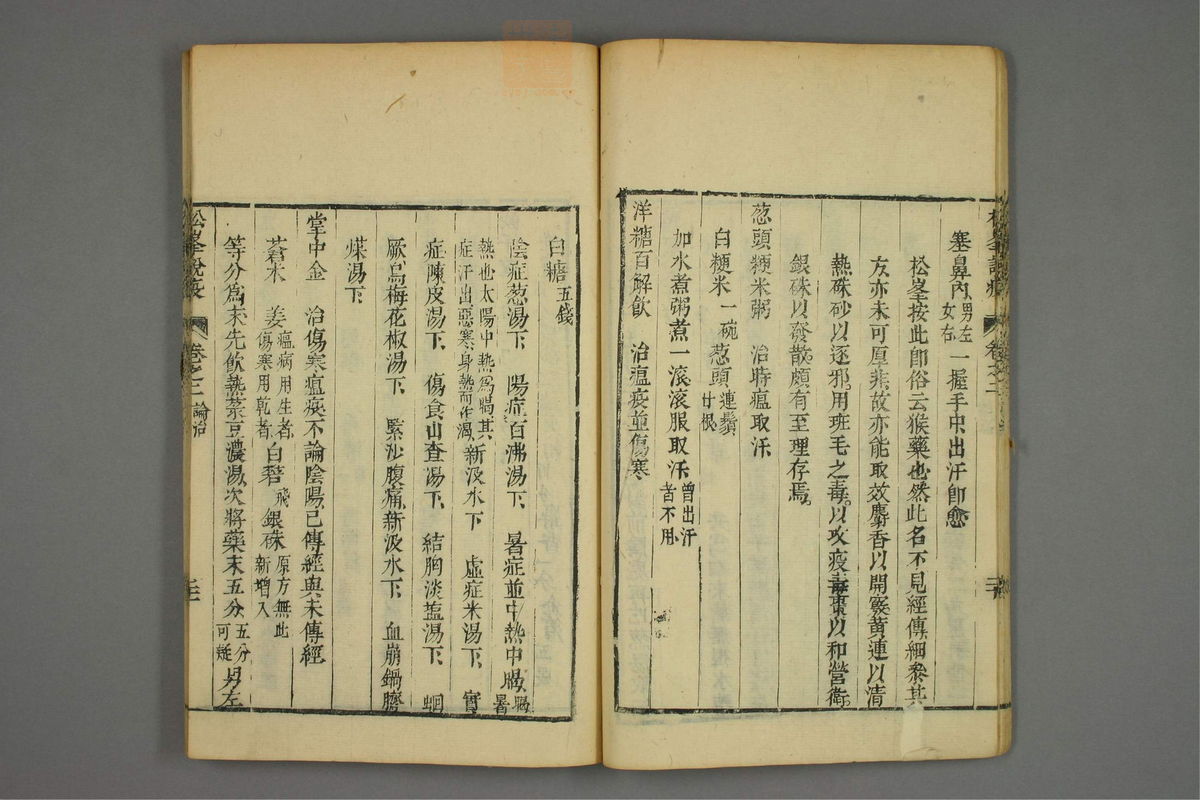 塞鼻內男左女右一握手中出汗卽愈
松峯按此卽俗云猴藥也然此名不見經傳細叅其
方亦未可厚非故亦能取效麝香以開竅黃連以清
熱硃砂以逐邪用班毛之毒以攻疫毒棗以和營衛
銀硃以發散頗有至理存焉
葱頭粳米粥 治時瘟取汗
白粳米一碗葱頭連鬚廿根
加水煮粥煮一滾滾服取汗曾出汗者不用
洋糖百解飲 治瘟疫並傷寒
白糖五錢
陰症葱湯下 陽症百沸湯下 暑症並中熱中暍暍暑
熱也太陽中熱爲暍其症汗出惡寒身熱而作渴新汲水下 虛症米湯下 實
症陳皮湯下 傷食山查湯下 結胸淡塩湯下 蛔
厥烏梅花椒湯下 緊沙腹痛新汲水下 血崩鍋臍
煤湯下
掌中金 治傷寒瘟疫不論陰陽已傳經與未傳經
蒼木 姜瘟病用生者傷寒用乾者白礬飛銀硃原方無此新增入
等分爲末先飲熱菉豆濃湯次將藥末五分五分可疑男左
松峯說疫 卷之二 論治